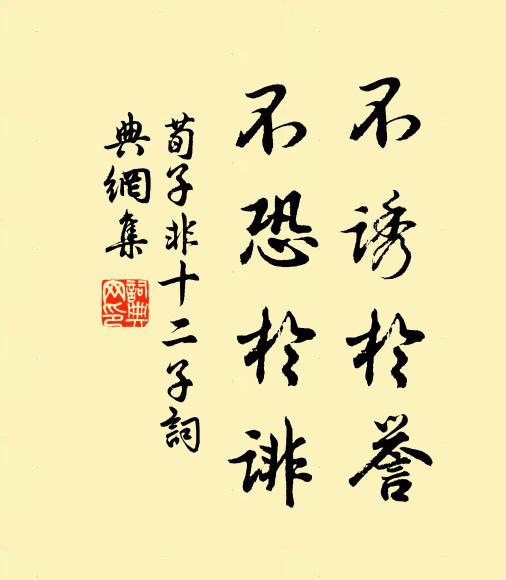 不誘於誉
不恐於誹
荀子非十二子詞
典網集
詞典网印